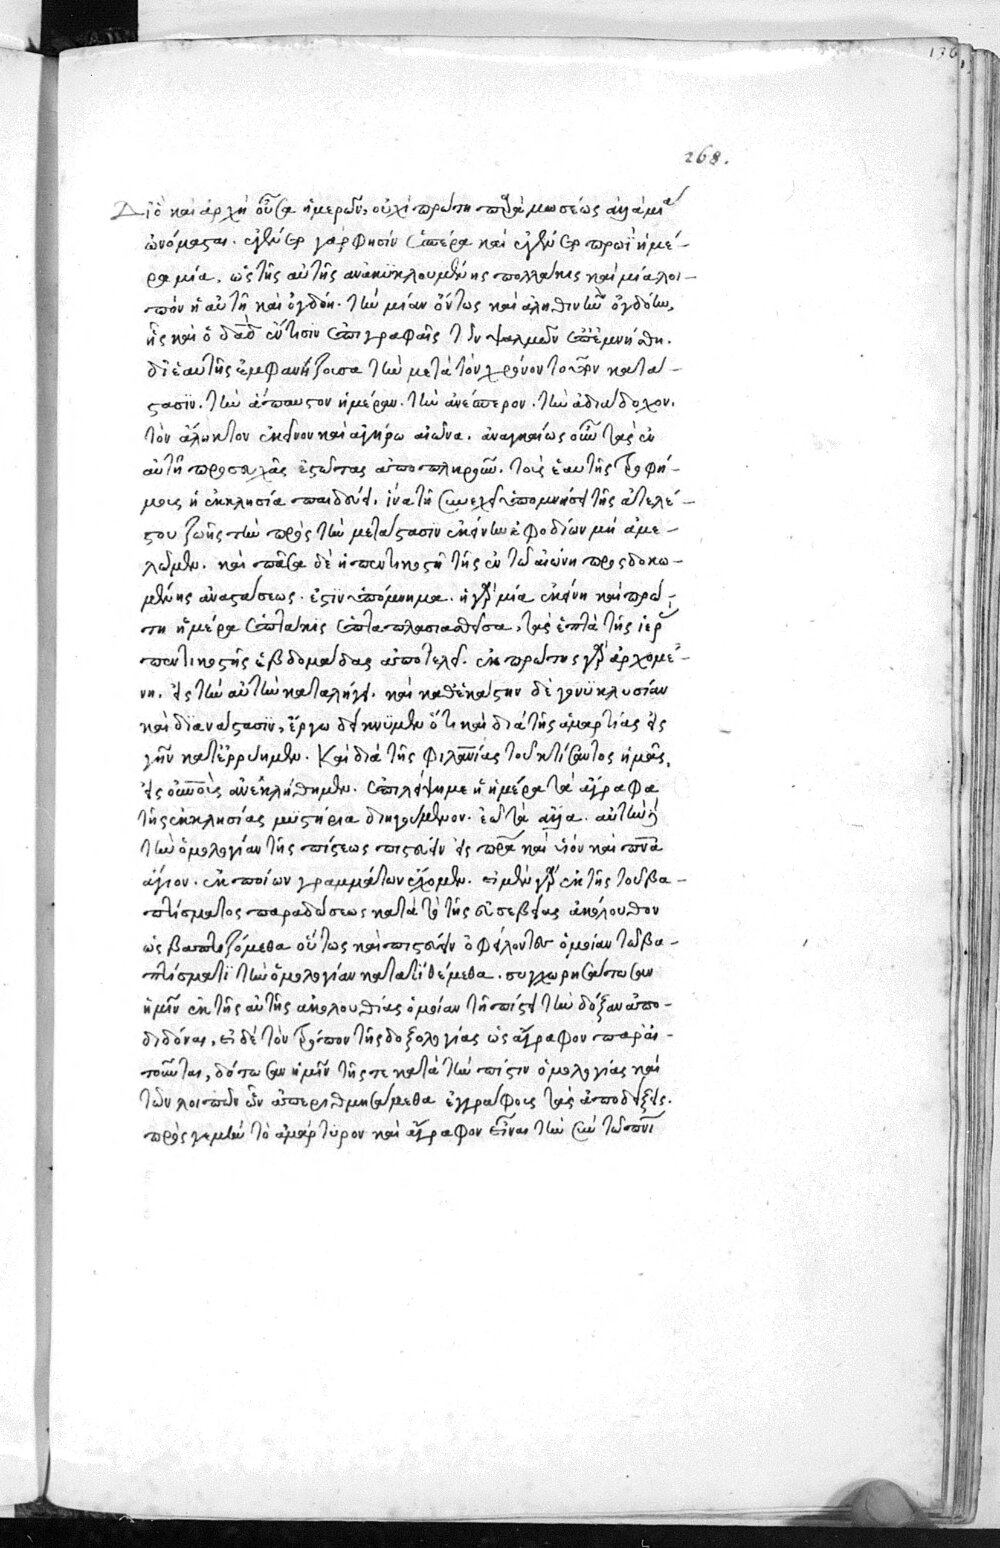 136
268.
Διὸ καὶ ἀρχὴ οὖσα ἡμερῶν, οὐχὶ πρώτη παρὰ μωσέως ἀλλὰ μία
ὠνόμασται. ἐγένετο γάρ φησιν ἑσπέρα καὶ ἐγένετο πρωῒ ἡμέ-
ρα μία, ὡς τῆς αὐτῆς ἀνακυκλουμένης πολλάκις καὶ μία λοι-
πὸν ἡ αὐτὴ καὶ ὀγδόη. τὴν μίαν ὄντως καὶ ἀληθινὴν ὀγδόην,
ἧς καὶ ὁ δαδ ἔν τισιν ἐπιγραφαῖς τῶν ψαλμῶν ἐπεμνήσθη.
δι' ἑαυτῆς ἐμφανίζουσα τὴν μετὰ τὸν χρόνον τοῦτον κατά-
στασιν. τὴν ἄπαυστον ἡμέραν. τὴν ἀνέσπερον. τὴν ἀδιάδοχον.
τὸν ἄληκτον ἐκεῖνον καὶ ἀγήρω αἰῶνα. ἀναγκαίως οὖν τὰς ἐν
αὐτῇ προσευχὰς ἑστῶτας ἀποπληροῦν. τοὺς ἑαυτῆς τροφί-
μους ἡ ἐκκλησία παιδεύει. ἵνα τῇ συνεχεῖ ὑπομνήσει τῆς ἀτελεύ-
του ζωῆς τῶν πρὸς τὴν μετάστασιν ἐκείνην ἐφοδίων μὴ ἀμε-
λῶμεν. καὶ πᾶσα δὲ ἡ πεντηκοστὴ τῆς ἐν τῷ αἰῶνι προσδοκω-
μένης ἀναστάσεως. ἐστὶν ὑπόμνημα. ἡ γὰρ μία ἐκείνη καὶ πρώ-
τη ἡμέρα ἑπτάκις ἑπταπλασιασθεῖσα, τὰς ἑπτὰ τῆς ἱερᾶς
πεντηκοστῆς ἑβδομάδας ἀποτελεῖ. ἐκ πρώτης γὰρ ἀρχομέ-
νη. εἰς τὴν αὐτὴν καταλήγει. καὶ καθ' ἑκάστην δὲ γονυκλισίαν
καὶ διανάστασιν, ἔργῳ δείκνυμεν ὅτι καὶ διὰ τῆς ἁμαρτίας εἰς
γῆν κατερρύημεν. Καὶ διὰ τῆς φιλανίας τοῦ κτίσαντος ἡμᾶς,
εἰς οὐνοὺς ἀνεκλήθημεν. ἐπιλείψει με ἡ ἡμέρα τὰ ἄγραφα
τῆς ἐκκλησίας μυστήρια διηγούμενον. ἐῶ τὰ ἄλλα. αὐτὴν δὲ
τὴν ὁμολογίαν τῆς πίστεως πιστεύειν εἰς πρα καὶ υἱὸν καὶ πνα
ἅγιον. ἐκ ποίων γραμμάτων ἔχομεν. εἰ μὲν γὰρ ἐκ τῆς τοῦ βα-
πτίσματος παραδόσεως κατὰ τὸ τῆς εὐσεβείας ἀκόλουθον
ὡς βαπτιζόμεθα οὕτως καὶ πιστεύειν ὀφείλοντες ὁμοίαν τῷ βα-
πτίσματι τὴν ὁμολογίαν κατατιθέμεθα. συγχωρησάτωσαν
ἡμῖν ἐκ τῆς αὐτῆς ἀκολουθίας ὁμοίαν τῇ πίστει τὴν δόξαν ἀπο-
διδόναι, εἰ δὲ τὸν τρόπον τῆς δοξολογίας ὡς ἄγραφον παραι-
τοῦνται, δότωσαν ἡμῖν τῆς τε κατὰ τὴν πίστιν ὁμολογίας καὶ
τῶν λοιπῶν ὧν ἀπηριθμησάμεθα ἐγγράφους τὰς ἀποδείξεις.
πρὸς γε μὴν τὸ ἀμάρτυρον καὶ ἄγραφον εἶναι τὴν σὺν τῷ πνι